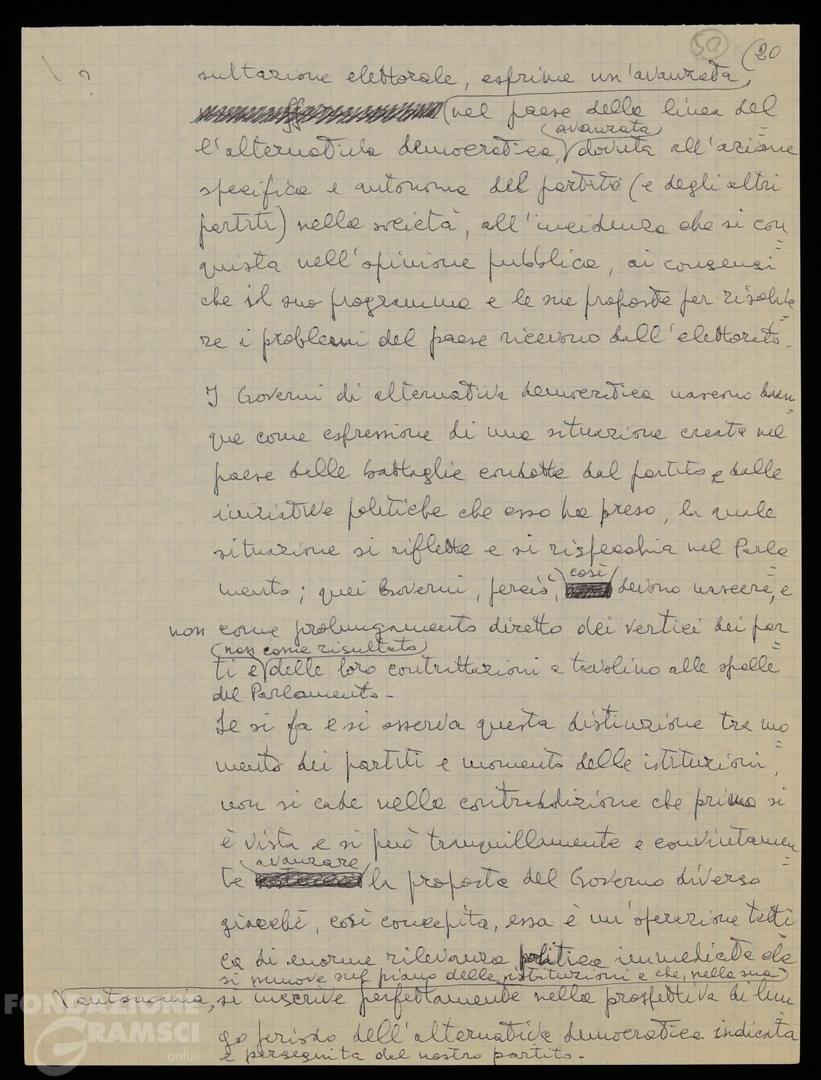 50 (20
?
sultazione elettorale, esprime un'avanzata
(nel paese della linea del
(avanzata)
l'alternativa democratica, dovuta all'azio=
specifica e autonoma del partito (e degli altri
partiti) nella società, all'incidenza che si con=
quista nell'opinione pubblica, ai consensi
che il suo programma e le sue proposte per risolve=
re i problemi del paese ricevono dall'elettorato.
I Governi di alternativa democratica nascono dun=
que come espressione di una situazione creata nel
paese dalle battaglie condotte dal partito e dalle
iniziative politiche che esso ha preso, la quale
situazione si riflette e si rispecchia nel Parla
mento; quei Governi, perciò, così devono nascere, e
non come prolungamento diretto dei vertici dei par=
(non come risultato)
ti e delle loro contrattazioni a tavolino alle spalle
del Parlamento -
Se si fa e si osserva questa distinzione tra mo=
mento dei partiti e momento delle istituzioni,
non si cade nella contraddizione che prima si
è vista e si può tranquillamente e convintamen=
avanzare
te la proposta del Governo diverso
giacché, così concepita, essa è un'operazione tatti=
ca di enorme rilevanza politica immediata che
si muove sul piano delle istituzioni e che, nella sua
autonomia, si inscrive perfettamente nella prospettiva di lun=
go periodo dell'alternativa democratica indicata
e perseguita dal nostro partito.-
FONDAZIONE
GRAMSCI
onlus